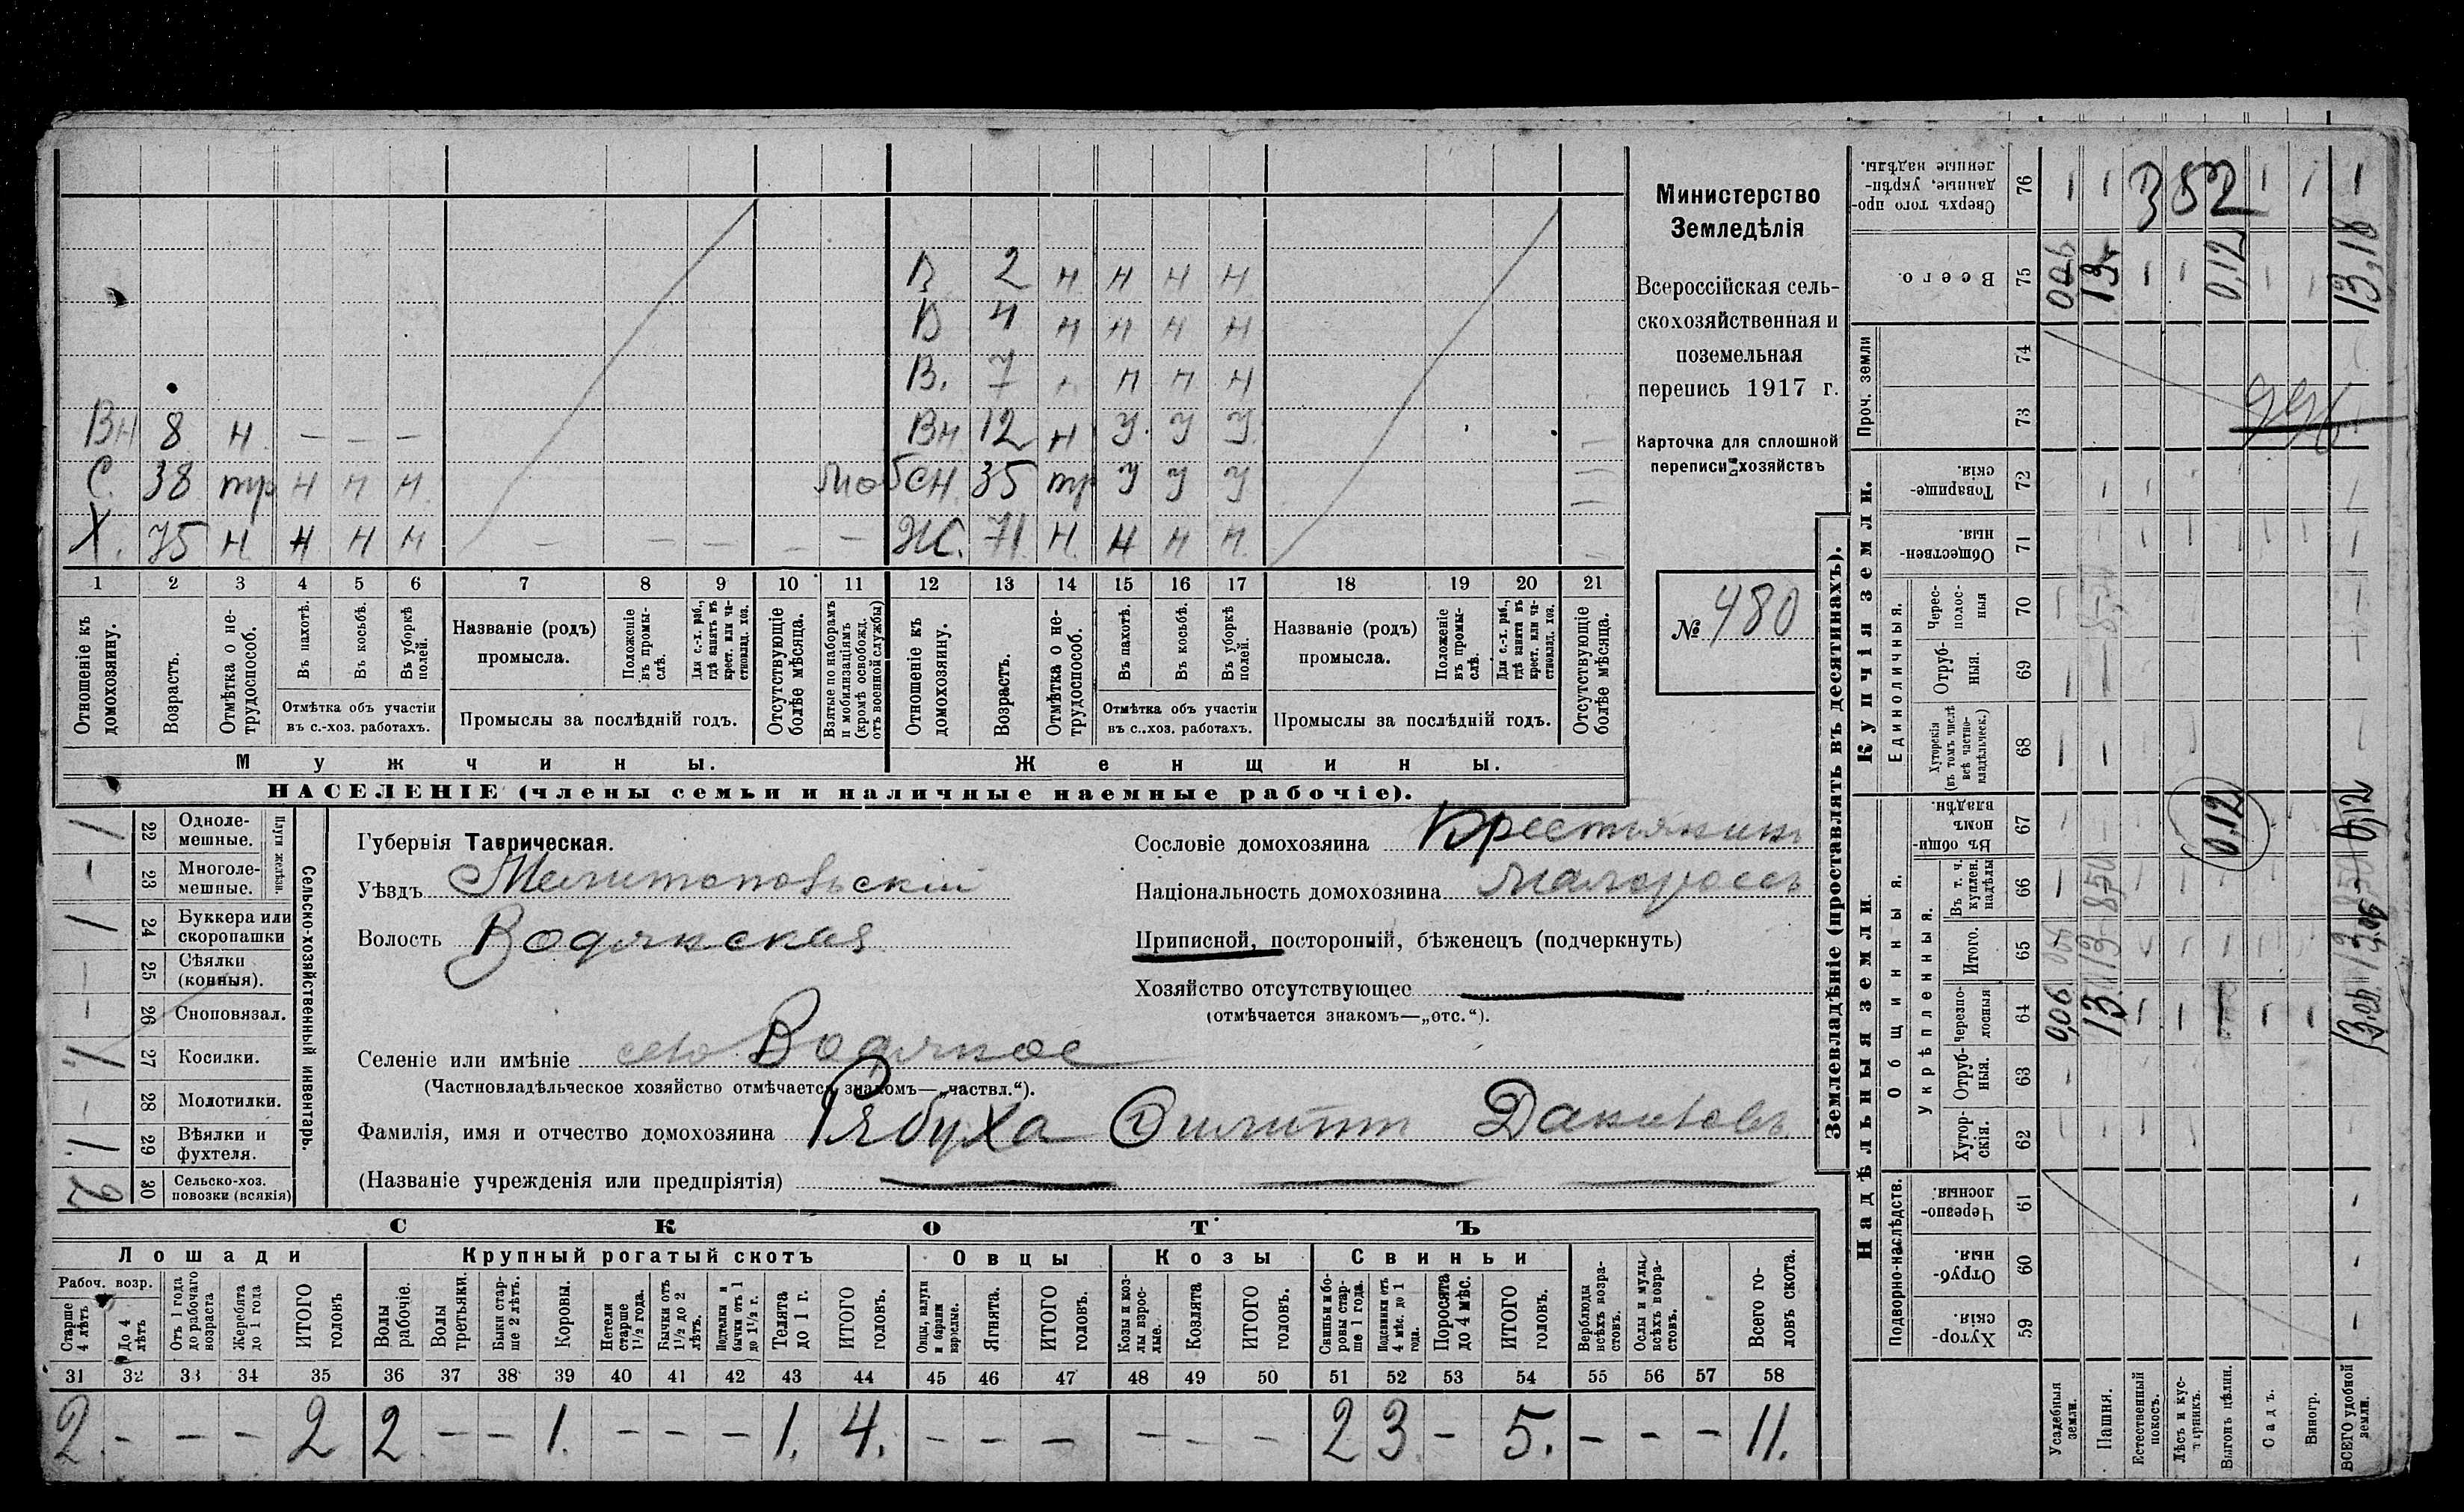 В 2 н н н н
В 4 н н н н
В. 7 н н н
Вн 8 н. — — — Вн 12 н У. У У.
С. 38 тр н н н моб Сн. 35 тр У У У
Х. 75 н. н н н — — — — — Ж. 71. Н. н н н.
1 2 3 4 5 6 7 8 9 10 11 12 13 14 15 16 17 18 19 20 21
Отношеніе къ домохозяину.
Возрастъ.
Отмѣтка о не-трудоспособ.
Въ пахотѣ.
Въ косьбѣ.
Въ уборкѣ полей.
Отмѣтка объ участіи
въ с.-хоз. работахъ.
Названіе (родъ)
промысла.
Положеніе въ промы-слѣ.
Для с.-х. раб., гдѣ занятъ въ крест. или ча-стновлад. хоз.
Промыслы за послѣдній годъ.
Отсутствующіе болѣе мѣсяца.
Взятые по наборамъ и мобилизаціямъ (кромѣ освобожд. отъ военной службы)
Отношеніе къ домохозяину.
Возрастъ.
Отмѣтка о не-трудоспособ.
Въ пахотѣ.
Въ косьбѣ.
Въ уборкѣ полей.
Отмѣтка объ участіи
въ с..хоз. работахъ.
Названіе (родъ)
промысла.
Положеніе въ промы-слѣ.
Для с.-х. раб., гдѣ занята въ крест. или ча-стновлад. хоз.
Промыслы за послѣдній годъ.
Отсутствующіе болѣе мѣсяца.
Мужчины. Женщины.
НАСЕЛЕНІЕ (члены семьи и наличные наемные рабочіе).
Министерство
Земледѣлія
Всероссійская сель-
скохозяйственная и
поземельная
перепись 1917 г.
Карточка для сплошной
переписи хозяйствъ
№ 480
Сельско-хозяйственный инвентарь.
Плуги желѣзн.
1 22 Одноле-мешные.
— 23 Многоле-мешные.
1 24 Буккера или скоропашки
— 25 Сѣялки (конныя).
— 26 Сноповязал.
1 27 Косилки.
— 28 Молотилки.
1. 29 Вѣялки и фухтеля.
2 30 Сельско-хоз. повозки (всякія)
Губернія Таврическая.
Уѣздъ Мелитопольскій
Волость Водянская
Селеніе или имѣніе село Водяное
(Частновладѣльческое хозяйство отмѣчается знакомъ—„частвл.“).
Фамилія, имя и отчество домохозяина Рябуха Филиппъ Даниловъ
(Названіе учрежденія или предпріятія)
Сословіе домохозяина Крестьянинъ
Національность домохозяина Малороссъ
Приписной, посторонній, бѣженецъ (подчеркнуть)
Хозяйство отсутствующее
(отмѣчается знакомъ—„отс.“).
СКОТЪ
Лошади Крупный рогатый скотъ Овцы Козы Свиньи
Рабоч. возр.
Старше 4 лѣтъ
До 4 лѣтъ
Отъ 1 года до рабочаго возраста
Жеребята до 1 года
ИТОГО головъ
Волы рабочіе.
Волы третьяки.
Быки стар-ше 2 лѣтъ.
Коровы.
Нетели старше 1½ года.
Бычки отъ 1½ до 2 лѣтъ.
Подтелки и бычки отъ 1 до 1½ г.
Телята до 1 г.
ИТОГО головъ.
Овцы, валухи и бараны взрослые.
Ягнята.
ИТОГО головъ.
Козы и коз-лы взрос-лые.
Козлята
ИТОГО головъ.
Свиньи и бо-ровы стар-ше 1 года.
Подсвинки отъ 4 мѣс. до 1 года.
Поросята до 4 мѣс.
ИТОГО головъ.
Верблюды всѣхъ возра-стовъ.
Ослы и мулы всѣхъ возра-стовъ.
Всего го-ловъ скота.
31 32 33 34 35 36 37 38 39 40 41 42 43 44 45 46 47 48 49 50 51 52 53 54 55 56 57 58
2 — — — 2 2 — — 1. — — — 1. 4. — — — — — — 2 3 — 5. — — — 11.
Землевладѣніе (проставлять въ десятинахъ).
Купчія земли.
Надѣльныя земли.
Сверхъ того про-данные, укрѣп-ленные надѣлы. 76 3 52
Всего. 75 13 0,12 13,18
Проч. земли 74 73
Товарище-скія. 72
Обществен-ныя 71
Единоличныя.
Черес-полос-ныя 70
Отруб-ныя. 69
Хуторскія (въ томъ числѣ всѣ частно-владѣльческ.) 68
Общинныя.
Въ общи-номъ владѣн. 67 0,12 0,12
Укрѣпленныя.
Въ т. ч. куплен. надѣлы 66 850
Итого. 65 13
Черезпо-лосныя 64 0,06 13. 13,06
Отруб-ныя. 63
Хутор-скія. 62
Подворно-наслѣдств.
Черезпо-лосныя. 61
Отруб-ныя. 60
Хутор-скія. 59
Усадебныя земли.
Пашня.
Естественный покосъ.
Лѣсъ и кус-тарникъ.
Выгонъ цѣлин.
Садъ.
Виногр.
ВСЕГО удобной земли.